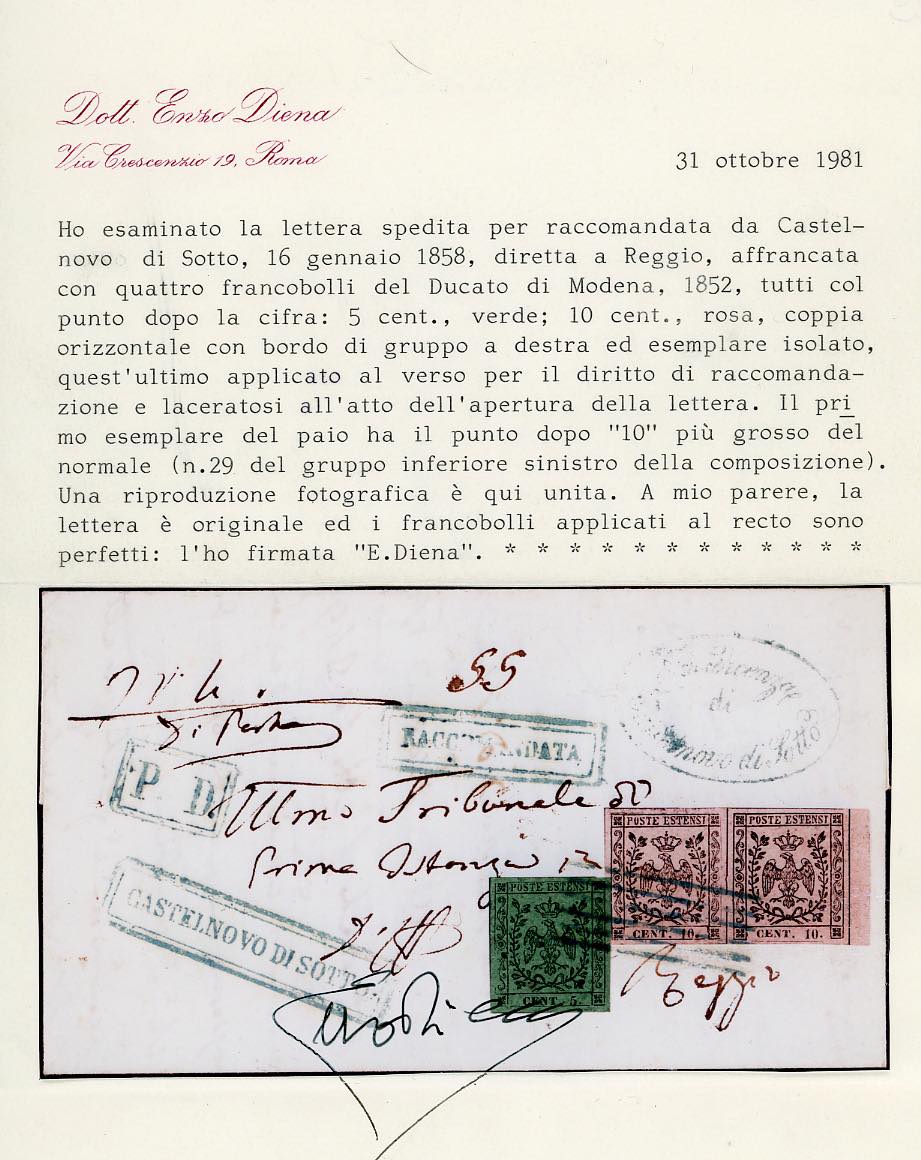 Dott. Enzo Diena
Via Crescenzio 19, Roma
31 ottobre 1981
Ho esaminato la lettera spedita per raccomandata da Castel-
novo di Sotto, 16 gennaio 1858, diretta a Reggio, affrancata
con quattro francobolli del Ducato di Modena, 1852, tutti col
punto dopo la cifra: 5 cent., verde; 10 cent., rosa, coppia
orizzontale con bordo di gruppo a destra ed esemplare isolato,
quest'ultimo applicato al verso per il diritto di raccomanda-
zione e laceratosi all'atto dell'apertura della lettera. Il pri
mo esemplare del paio ha il punto dopo "10" più grosso del
normale (n.29 del gruppo inferiore sinistro della composizione).
Una riproduzione fotografica è qui unita. A mio parere, la
lettera è originale ed i francobolli applicati al recto sono
perfetti: l'ho firmata "E.Diena". * * * * * * * * * * * *
di
novo di Sotto
RACCOMANDATA
P. D.
Tribunale di
Prima Istanza in
POSTE ESTENSI
CENT. 10.
POSTE ESTENSI
CENT. 10.
POSTE ESTENSI
CENT. 5.
CASTELNOVO DI SOTTO.
Reggio